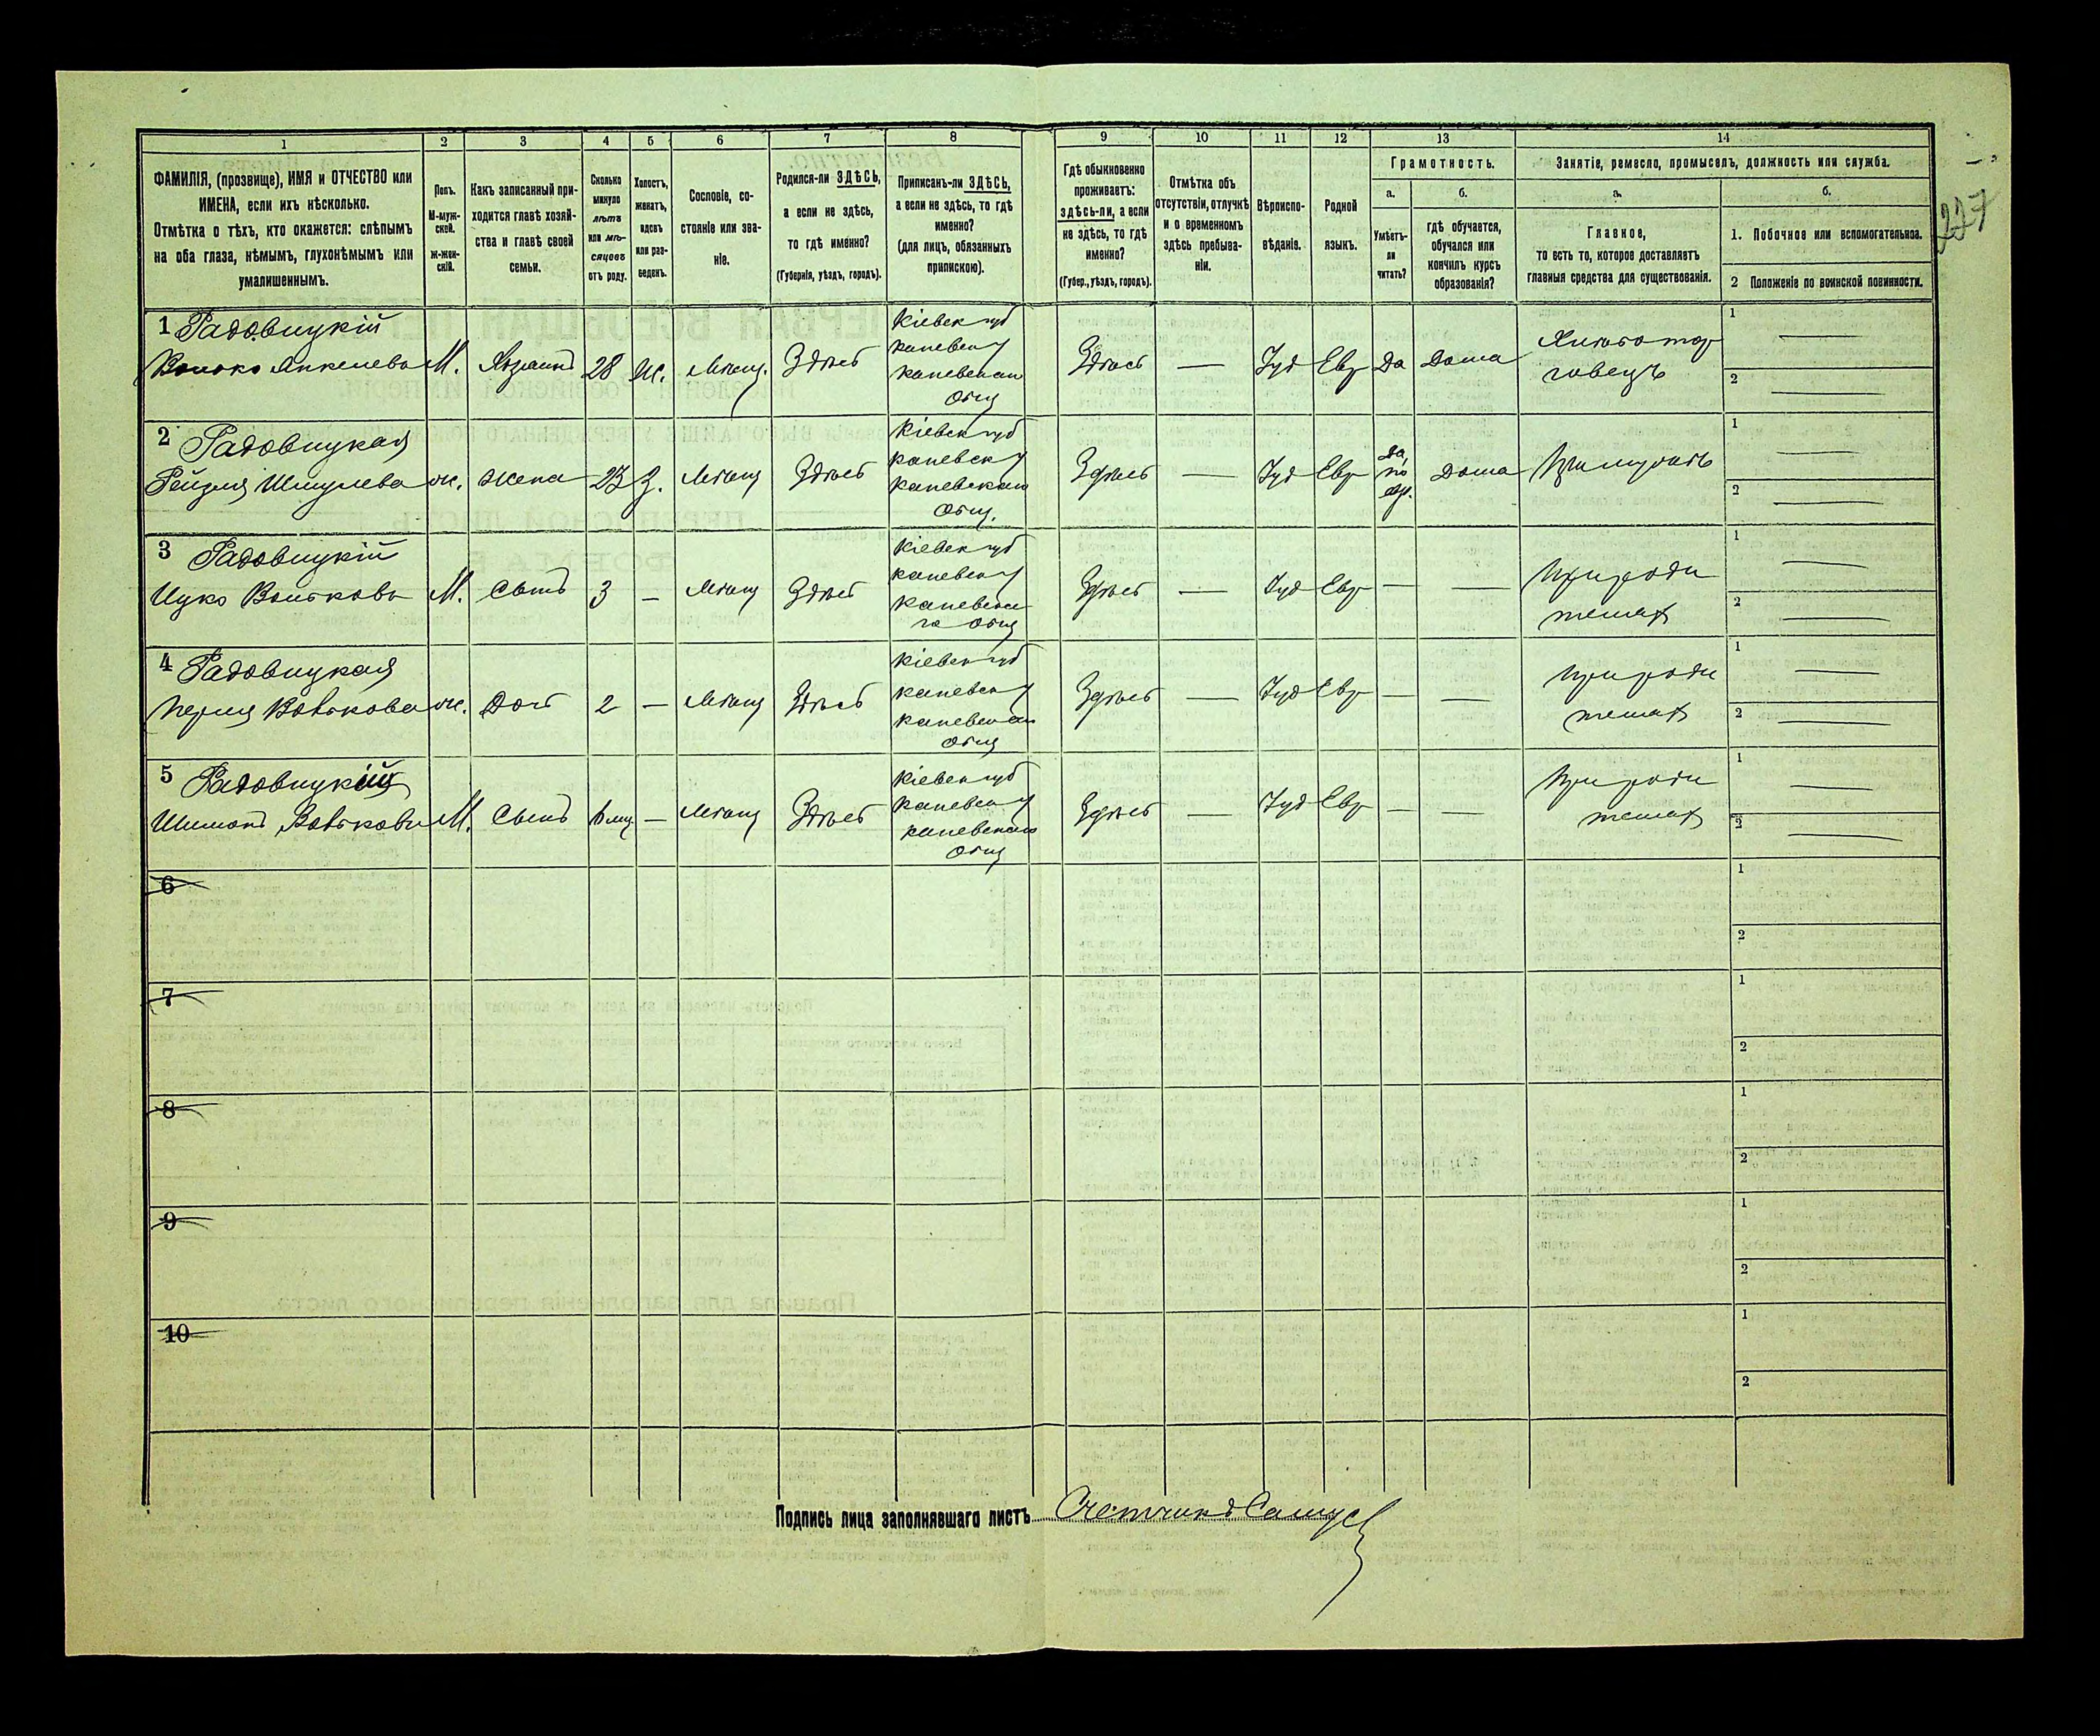 1 2 3 4 5 6 7 8 9 10 11 12 13 14
ФАМИЛІЯ, (прозвище), ИМЯ и ОТЧЕСТВО или
ИМЕНА, если ихъ нѣсколько.
Отмѣтка о тѣхъ, кто окажется: слѣпымъ
на оба глаза, нѣмымъ, глухонѣмымъ или
умалишеннымъ.
Полъ.
М-муж-
ской.
Ж-жен-
скій.
Какъ записанный при-
ходится главѣ хозяй-
ства и главѣ своей
семьи.
Сколько
минуло
лѣтъ
или мѣ-
сяцевъ
отъ роду.
Холостъ,
женатъ,
вдовъ
или раз-
веденъ.
Сословіе, со-
стояніе или зва-
ніе.
Родился-ли ЗДѢСЬ,
а если не здѣсь,
то гдѣ именно?
(Губернія, уѣздъ, городъ).
Приписанъ-ли ЗДѢСЬ,
а если не здѣсь, то гдѣ
именно?
(для лицъ, обязанныхъ
припискою).
Гдѣ обыкновенно
проживаетъ:
здѣсь-ли, а если
не здѣсь, то гдѣ
именно?
(Губер., уѣздъ, городъ).
Отмѣтка объ
отсутствіи, отлучкѣ
и о временномъ
здѣсь пребыва-
ніи.
Вѣроиспо-
вѣданіе.
Родной
языкъ.
Грамотность.
а.
Умѣетъ-
ли
читать?
б.
гдѣ обучается,
обучался или
кончилъ курсъ
образованія?
Занятіе, ремесло, промыселъ, должность или служба.
а.
Главное,
то есть то, которое доставляетъ
главныя средства для существованія.
б.
1. Побочное или вспомогательное.
2 Положеніе по воинской повинности.
227
1 Радовицкій
М. Хозяинъ 28 ж. Мѣщ. Здѣсь
Кіевск губ
каневск у
каневскаго
Общ
Здѣсь — Іуд Евр Да Дома
1 —
2 —
2 Радовицкая
Рейзля Шмулева ж. жена 23 з. Мѣщ Здѣсь
Кіевск губ
каневск у
каневскаго
Общ.
Здѣсь — Іуд Евр
Да,
по
евр.
Дома При мужѣ
1 —
2 —
3 Радовицкій
М. Сынъ 3 — Мѣщ Здѣсь
Кіевск губ
каневск у
каневска
го Общ
Здѣсь — Іуд Евр — —
При роди
теляхъ
1 —
2 —
4 Радовицкая
Перля ж. Доч 2 — Мѣщ Здѣсь
Кіевск губ
каневск у
каневскаго
Общ
Здѣсь — Іуд Евр — —
При роди
теляхъ
1 —
2 —
5 Радовицкій
Шимонъ М. Сынъ — Мѣщ Здѣсь
Кіевск губ
каневск у
каневскаго
Общ
Здѣсь — Іуд Евр — —
При роди
теляхъ
1 —
2 —
6 1
2
7 1
2
8 1
2
9 1
2
10 1
2
Подпись лица заполнявшаго листъ Счетчикъ